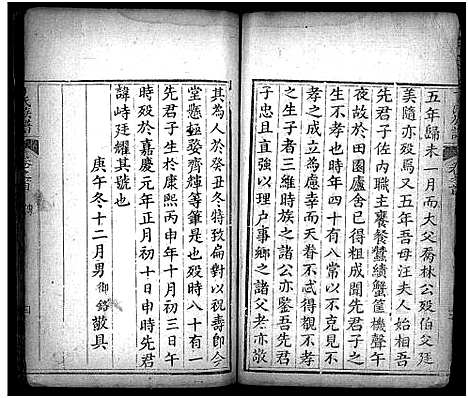 五年歸未一月而大父喬林公殁伯父廷
美隨亦殁焉又五年吾母汪夫人始相吾
先君子佐内職主饔餐蠶績蟹筐機聲午
夜不倦於田園廬舍已得粗成聞先君子之
生不孝也時年四十有八常以不克見不
孝之成立為戚而天眷不忒得觀不孝
之生子者三維時族之諸公亦鑒吾先君
子忠直強以理户事鄉之諸父老亦敬
其為人於癸丑冬特致扁對以祝壽即今
堂懸極婺齊輝等筆是也殁時八十有一
先君子生於康熙丙申年十月初三日午
時殁於嘉慶元年正月初十日申時先君
諱峙廷耀其號也
庚午冬十二月男御鉻敬具